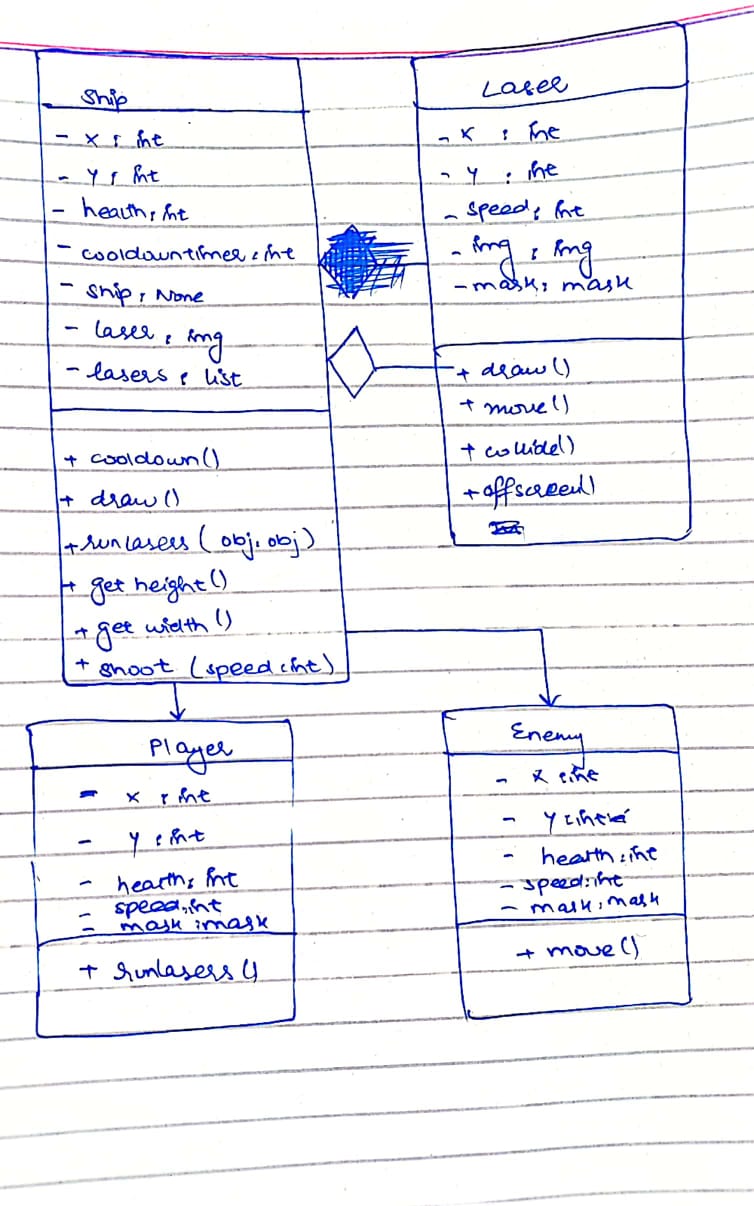 Ship
- x : int
- y : int
- health : int
- cooldowntimer : int
- ship : None
- laser : img
- lasers : list
+ cooldown()
+ draw()
+ runlasers (obj, obj)
+ get height()
+ get width()
+ shoot (speed : int)
Laser
- x : int
- y : int
- speed : int
- img : img
- mask : mask
+ draw()
+ move()
+ collide()
+ offscreen()
Player
- x : int
- y : int
- health : int
- speed : int
- mask : mask
+ runlasers()
Enemy
- x : int
- y : int
- health : int
- speed : int
- mask : mask
+ move()